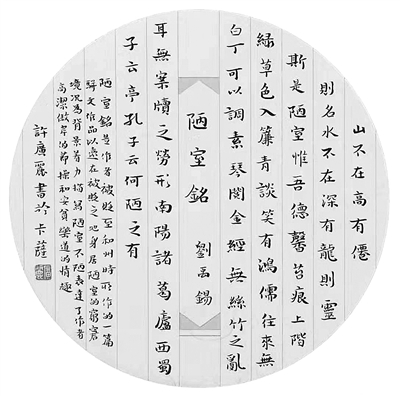 山不在高有僊
則名水不在深有龍則靈
斯是陋室惟吾德馨苔痕上階
綠草色入簾青談笑有鴻儒往來無
白丁可以調素琴閱金經無絲竹之亂
陋室銘
劉禹錫
耳無案牘之勞形南陽諸葛廬西蜀
子云亭孔子云何陋之有
陋室銘是作者被貶至和州時所作的一篇
駢文作品以遠在被貶之地身居陋室的窮窘
境況為背景着力描寫陋室不陋表達了作者
高潔傲岸的節操和安貧樂道的情趣
許廣麗書於卡薩